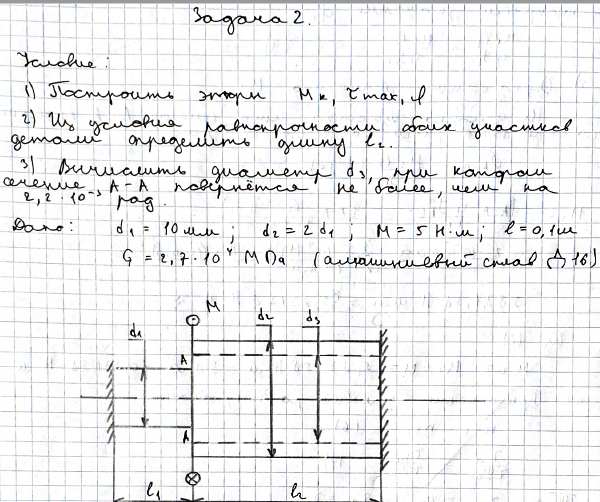 Задача 2.
Условие:
1) Построить эпюры Mк, τmax, φ
2) Из условия равнопрочности обоих участков
детали определить длину l₂.
3) Вычислить диаметр d₃, при котором
сечение А-А повернётся не более, чем на
2,2·10⁻³ рад.
Дано: d₁ = 10 мм; d₂ = 2d₁; M = 5 Н·м; l = 0,1 м
G = 2,7·10⁴ МПа (алюминиевый сплав Д16)
M
d₁ d₂ d₃
A
A
l₁ l₂